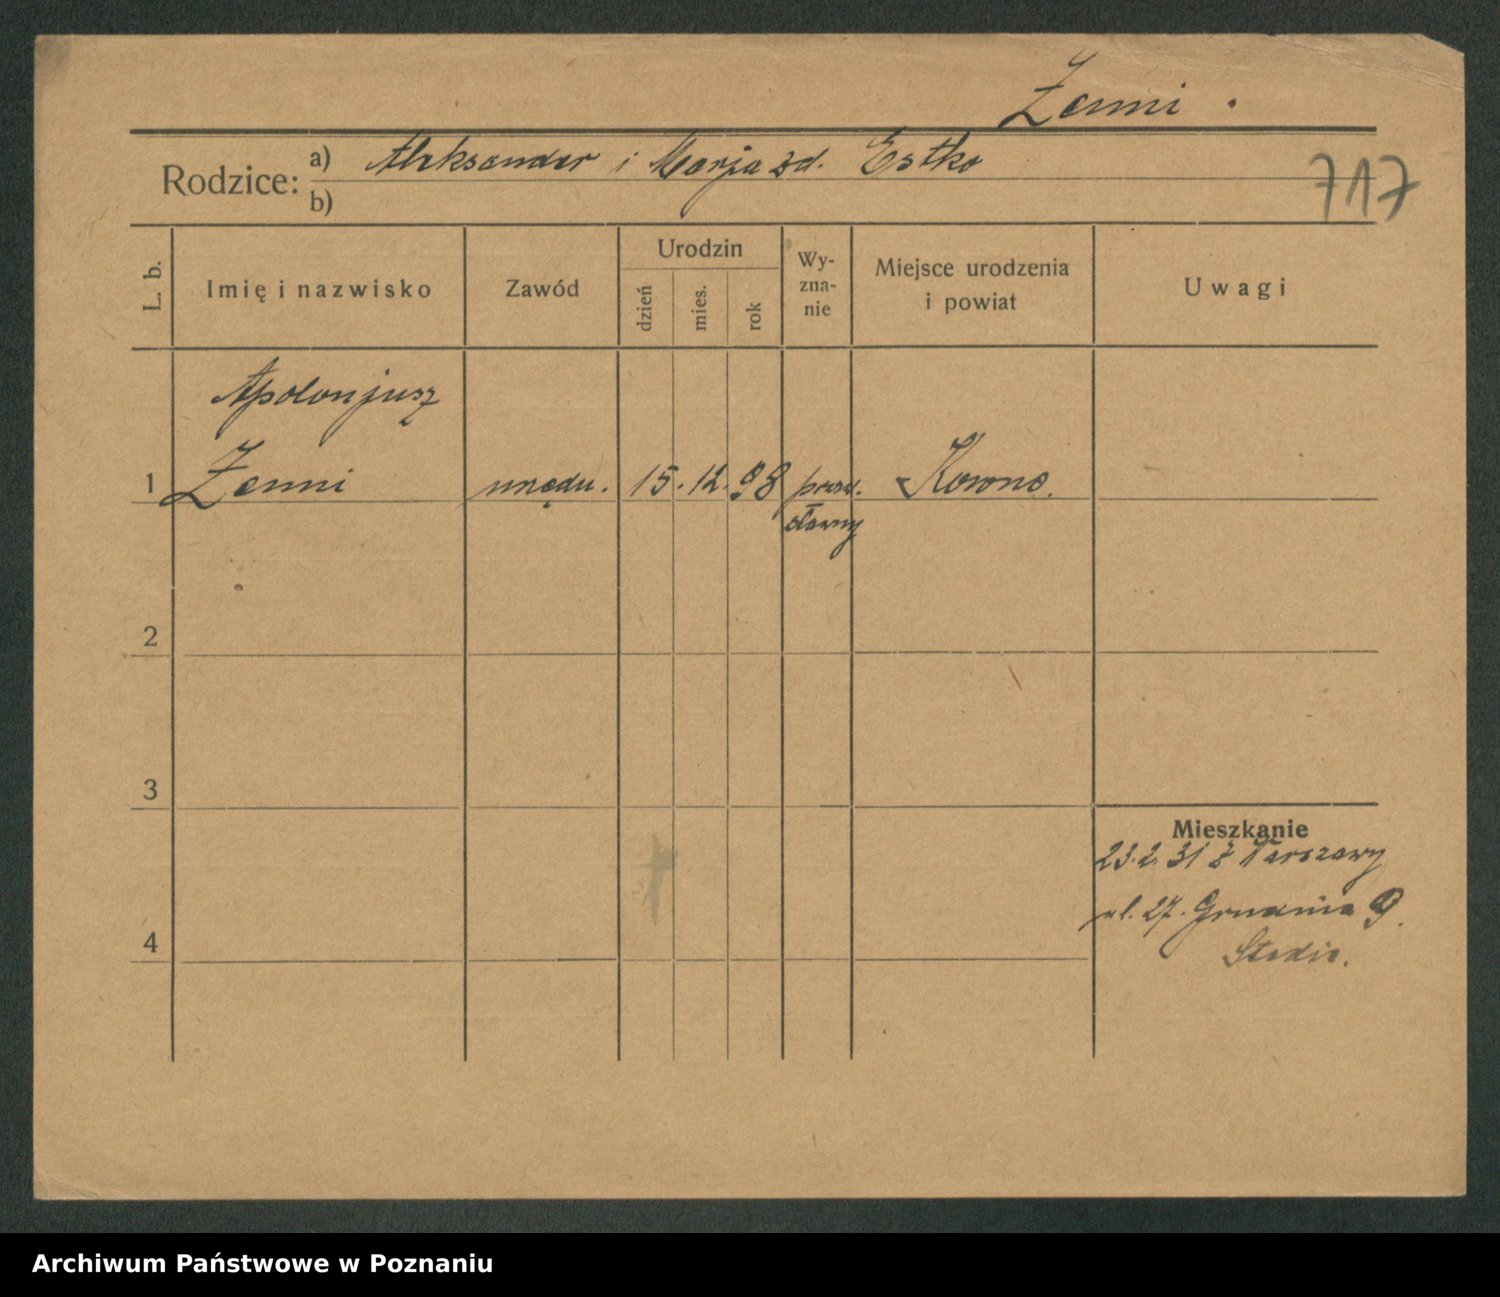 Zenni .
Rodzice: a) Aleksander i Marja zd. Estko
b)
717
L. b.
Imię i nazwisko
Zawód
Urodzin
dzień
mies.
rok
Wy-
zna-
nie
Miejsce urodzenia
i powiat
Uwagi
Apolonjusz
1 Zenni urzędn. 15. 12. 98 praw. Kowno.
sławny
2
3
Mieszkanie
23.2.31 z Warszawy
ul. 27. Grudnia 9.
4
Archiwum Państwowe w Poznaniu